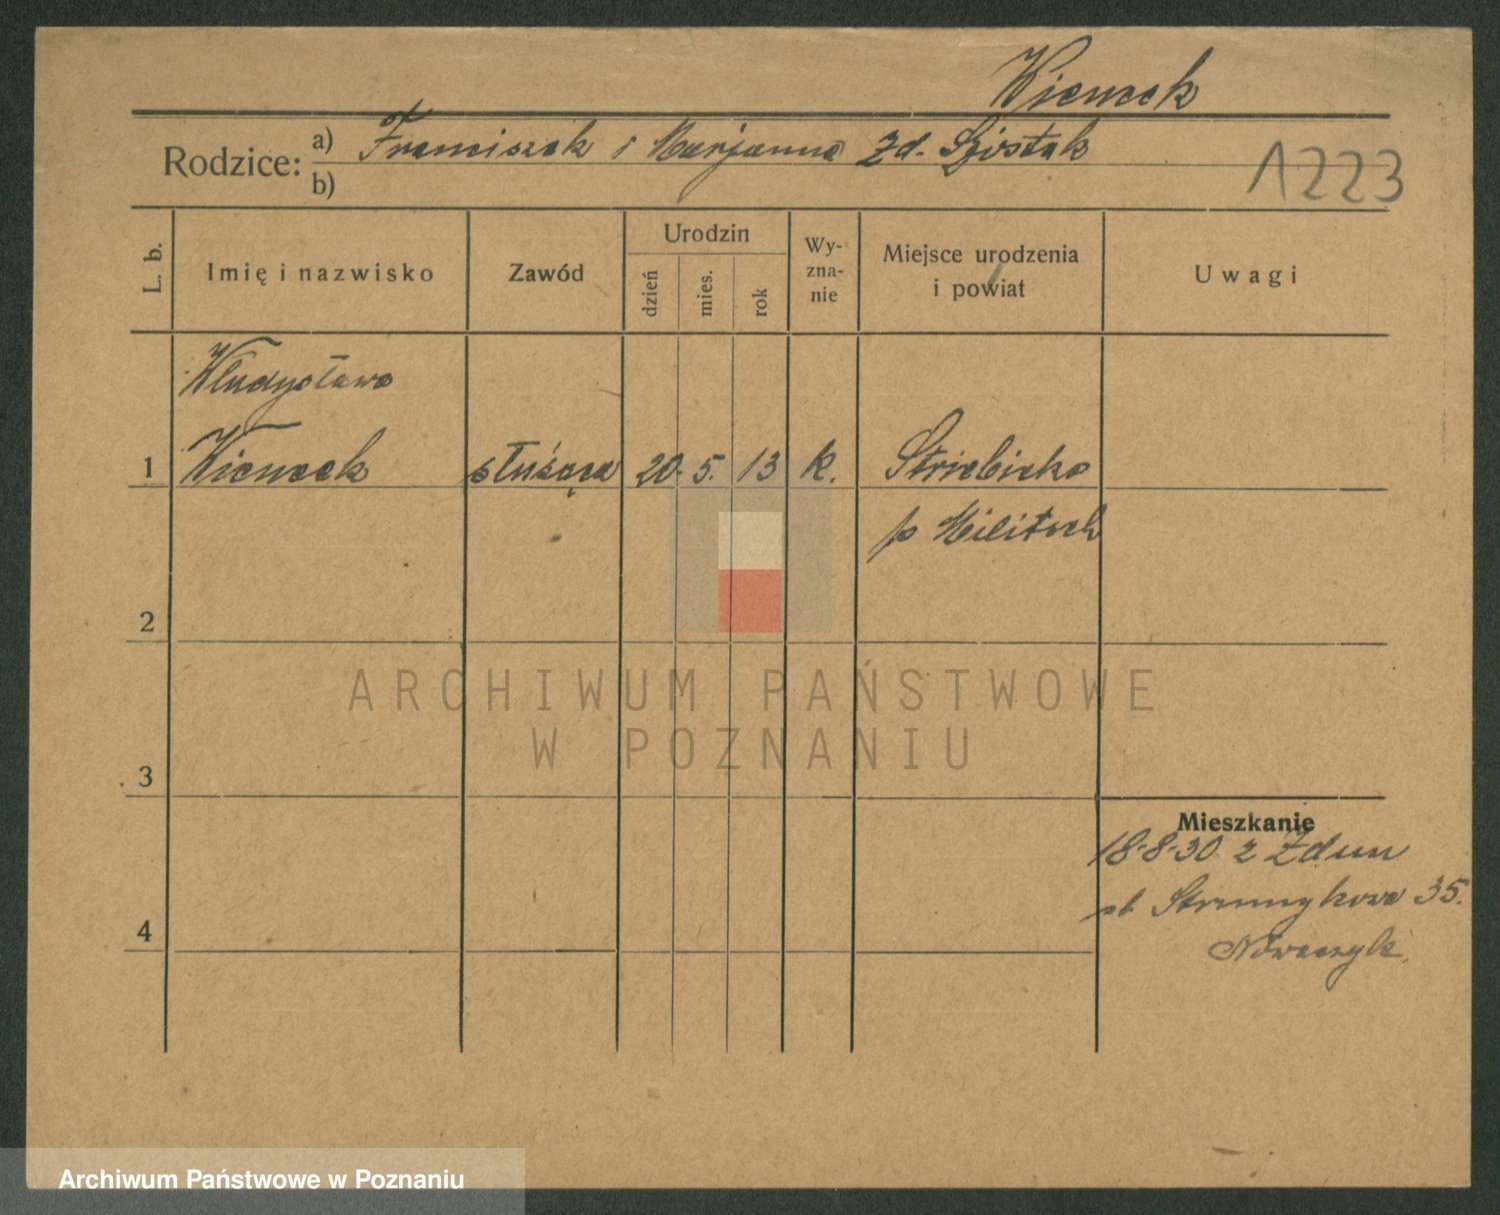 Wiencek
Rodzice: a) Franciszek i Marjanna zd. Szóstak
b)
1223
L. b.
Imię i nazwisko
Zawód
Urodzin
dzień
mies.
rok
Wy-
zna-
nie
Miejsce urodzenia
i powiat
Uwagi
Władysława
1 Wiencek służąca 20. 5. 13 k. Striebitzko
p Militsch
2
3
4
Mieszkanie
18.8.30 z Zdun
35.
Nowaczyk
ARCHIWUM PAŃSTWOWE
W POZNANIU
Archiwum Państwowe w Poznaniu